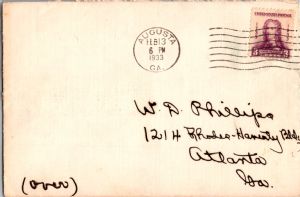 AUGUSTA
FEB 13
6 PM
1933
GA.
UNITED STATES POSTAGE
W. D. Phillips
1214 Rhodes-Haverty Bldg
Atlanta
Ga.
(over)